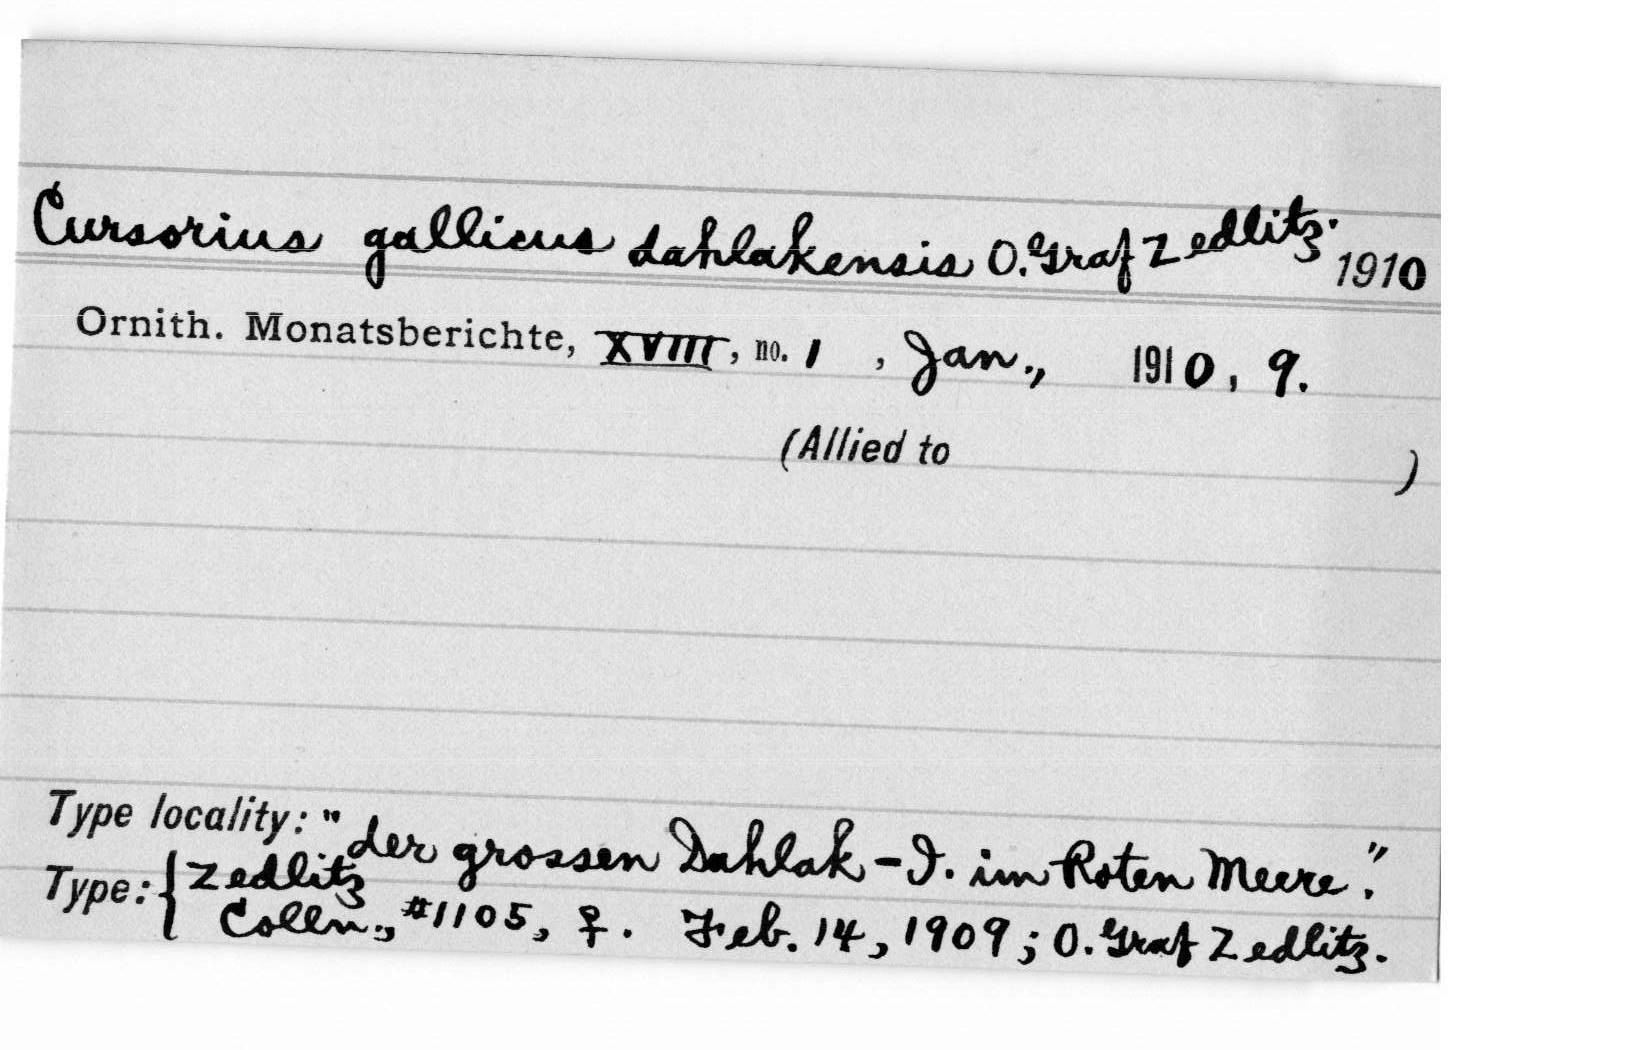 Cursorius gallicus dahlakensis O. Graf Zedlitz. 1910
Ornith. Monatsberichte, XVIII, no. 1 , Jan., 1910, 9.
(Allied to )
Type locality: "der grossen Dahlak-I. im Roten Meere."
Type: { Zedlitz
Colln., #1105, ♀. Feb. 14, 1909; O. Graf Zedlitz.